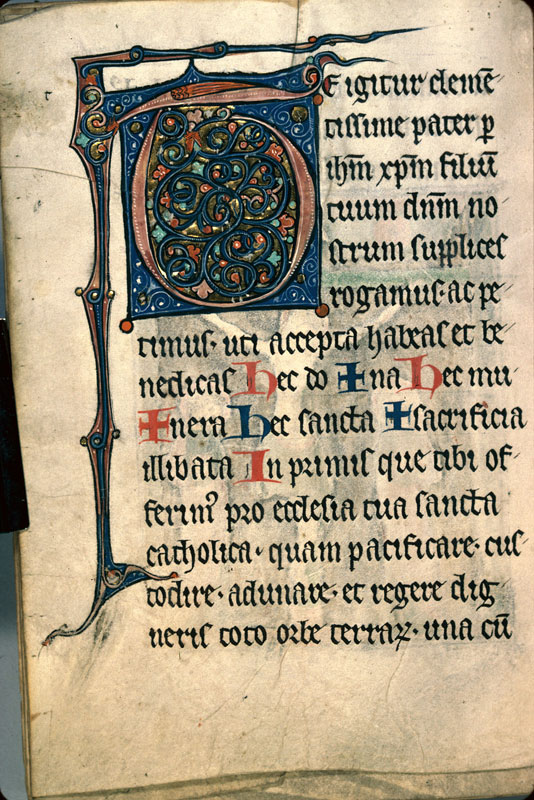 TE igitur clemē-
tissime pater p̄
ihm̄ xp̄m filiū
tuum dn̄m no-
strum supplices
rogamus· ac pe-
timus· uti accepta habeas et be-
nedicas hec do ✠ na hec mu-
✠ nera hec sancta ✠ sacrificia
illibata In primis que tibi of-
ferim᷒ pro ecclesia tua sancta
catholica· quam pacificare· cus-
todire· adunare· et regere dig-
neris toto orbe terraꝝ· una cū